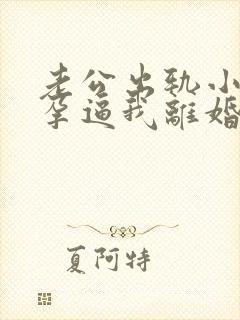 老公出轨小
孕逼我離婚
夏阿特